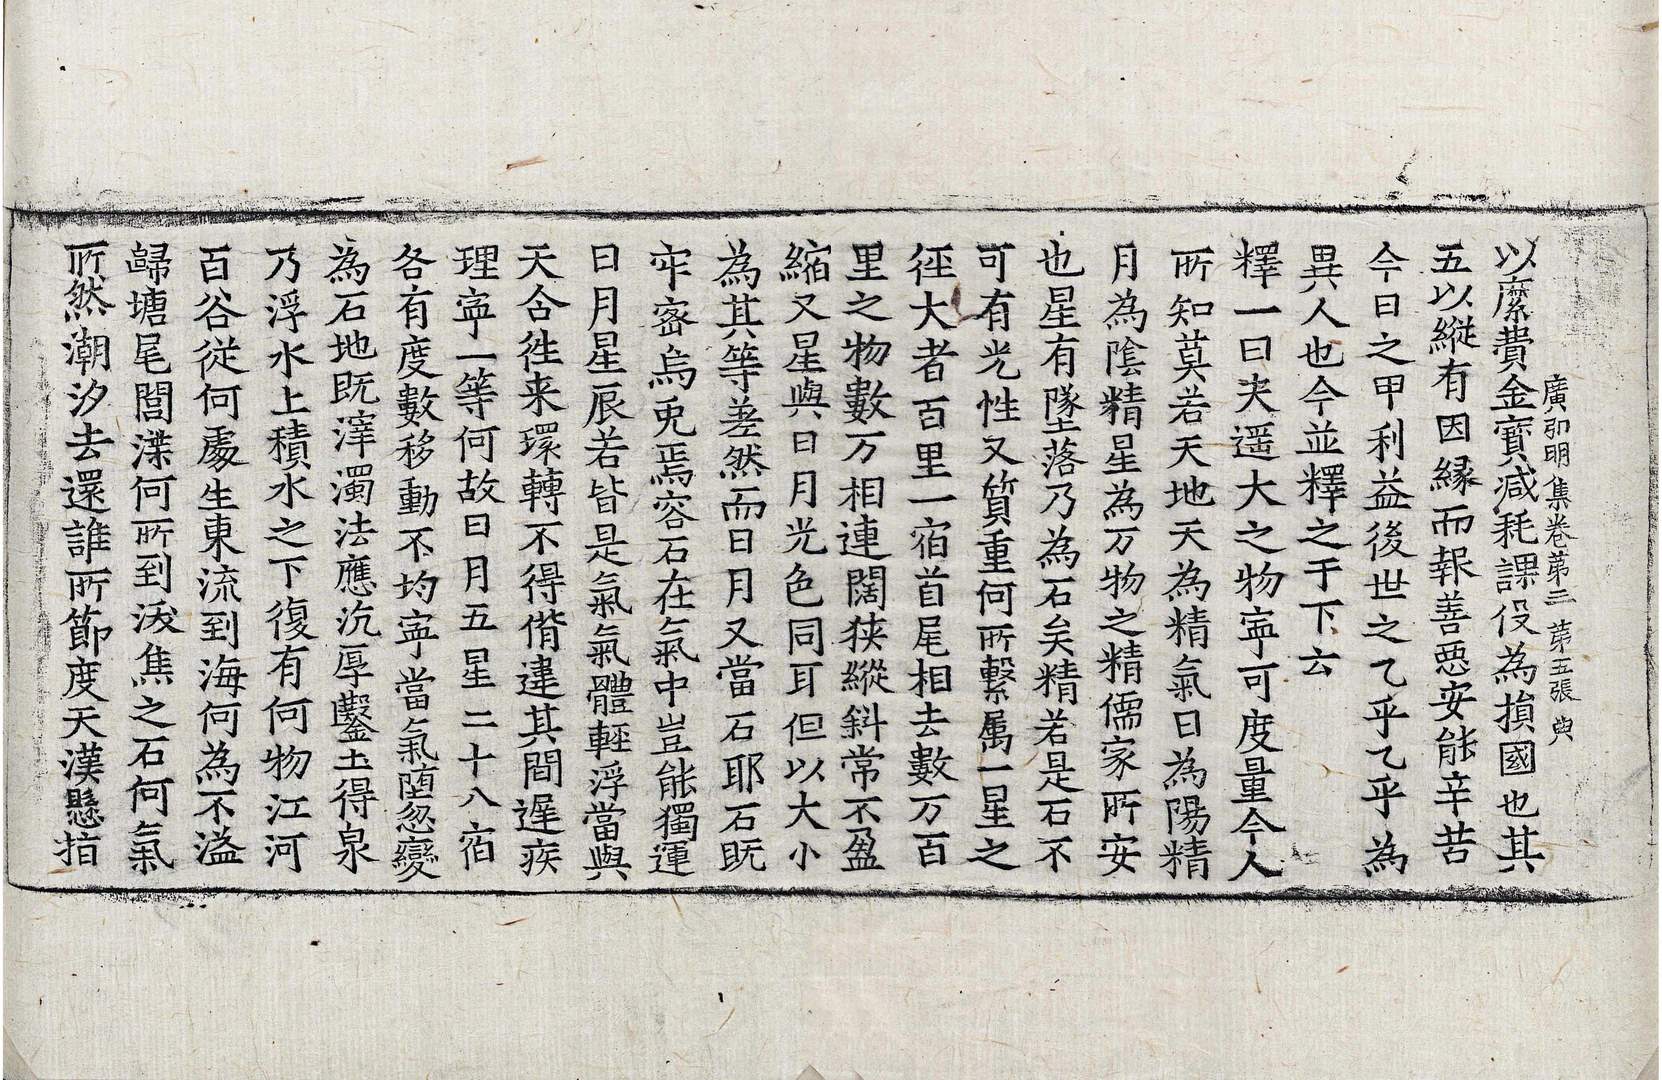 廣弘明集卷苐三 苐五張 典
以縻費金寳減秏課伇為損國也其
五以縱有因縁而報善惡安能辛苦
今日之甲利益後世之乙乎乙乎為
異人也今並釋之于下云
釋一曰夫遥大之物寕可度量今人
所知莫若天地天為精氣日為陽精
月為隂精星為万物之精儒家所安
也星有墜落乃為石矣精若是石不
可有光性又質重何所繫属一星之
徑大者百里一宿首尾相去數万百
里之物數万相連闊狹縱斜常不盈
縮又星與日月光色同耳但以大小
為其等差然而日月又當石耶石既
牢宻烏兎焉容石在氣中豈能獨運
日月星辰若皆是氣氣體輕浮當與
天合徃来環轉不得偝違其間遲疾
理寕一等何故日月五星二十八宿
各有度數移動不均寕當氣墮忽變
為石地既滓濁法應沉厚鑿土得泉
乃浮水上積水之下復有何物江河
百谷從何處生東流到海何為不溢
歸塘尾閭渫何所到沃焦之石何氣
所然潮汐去還誰所節度天漢懸指